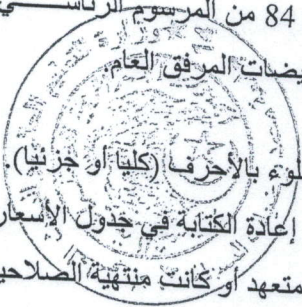 84 من المرسوم الرئاسي
المرفق العام.
بالأحرف (كليا أو جزئيا).
إعادة الكتابة في جدول الأسعار
أو كانت منتهية الصلاحي